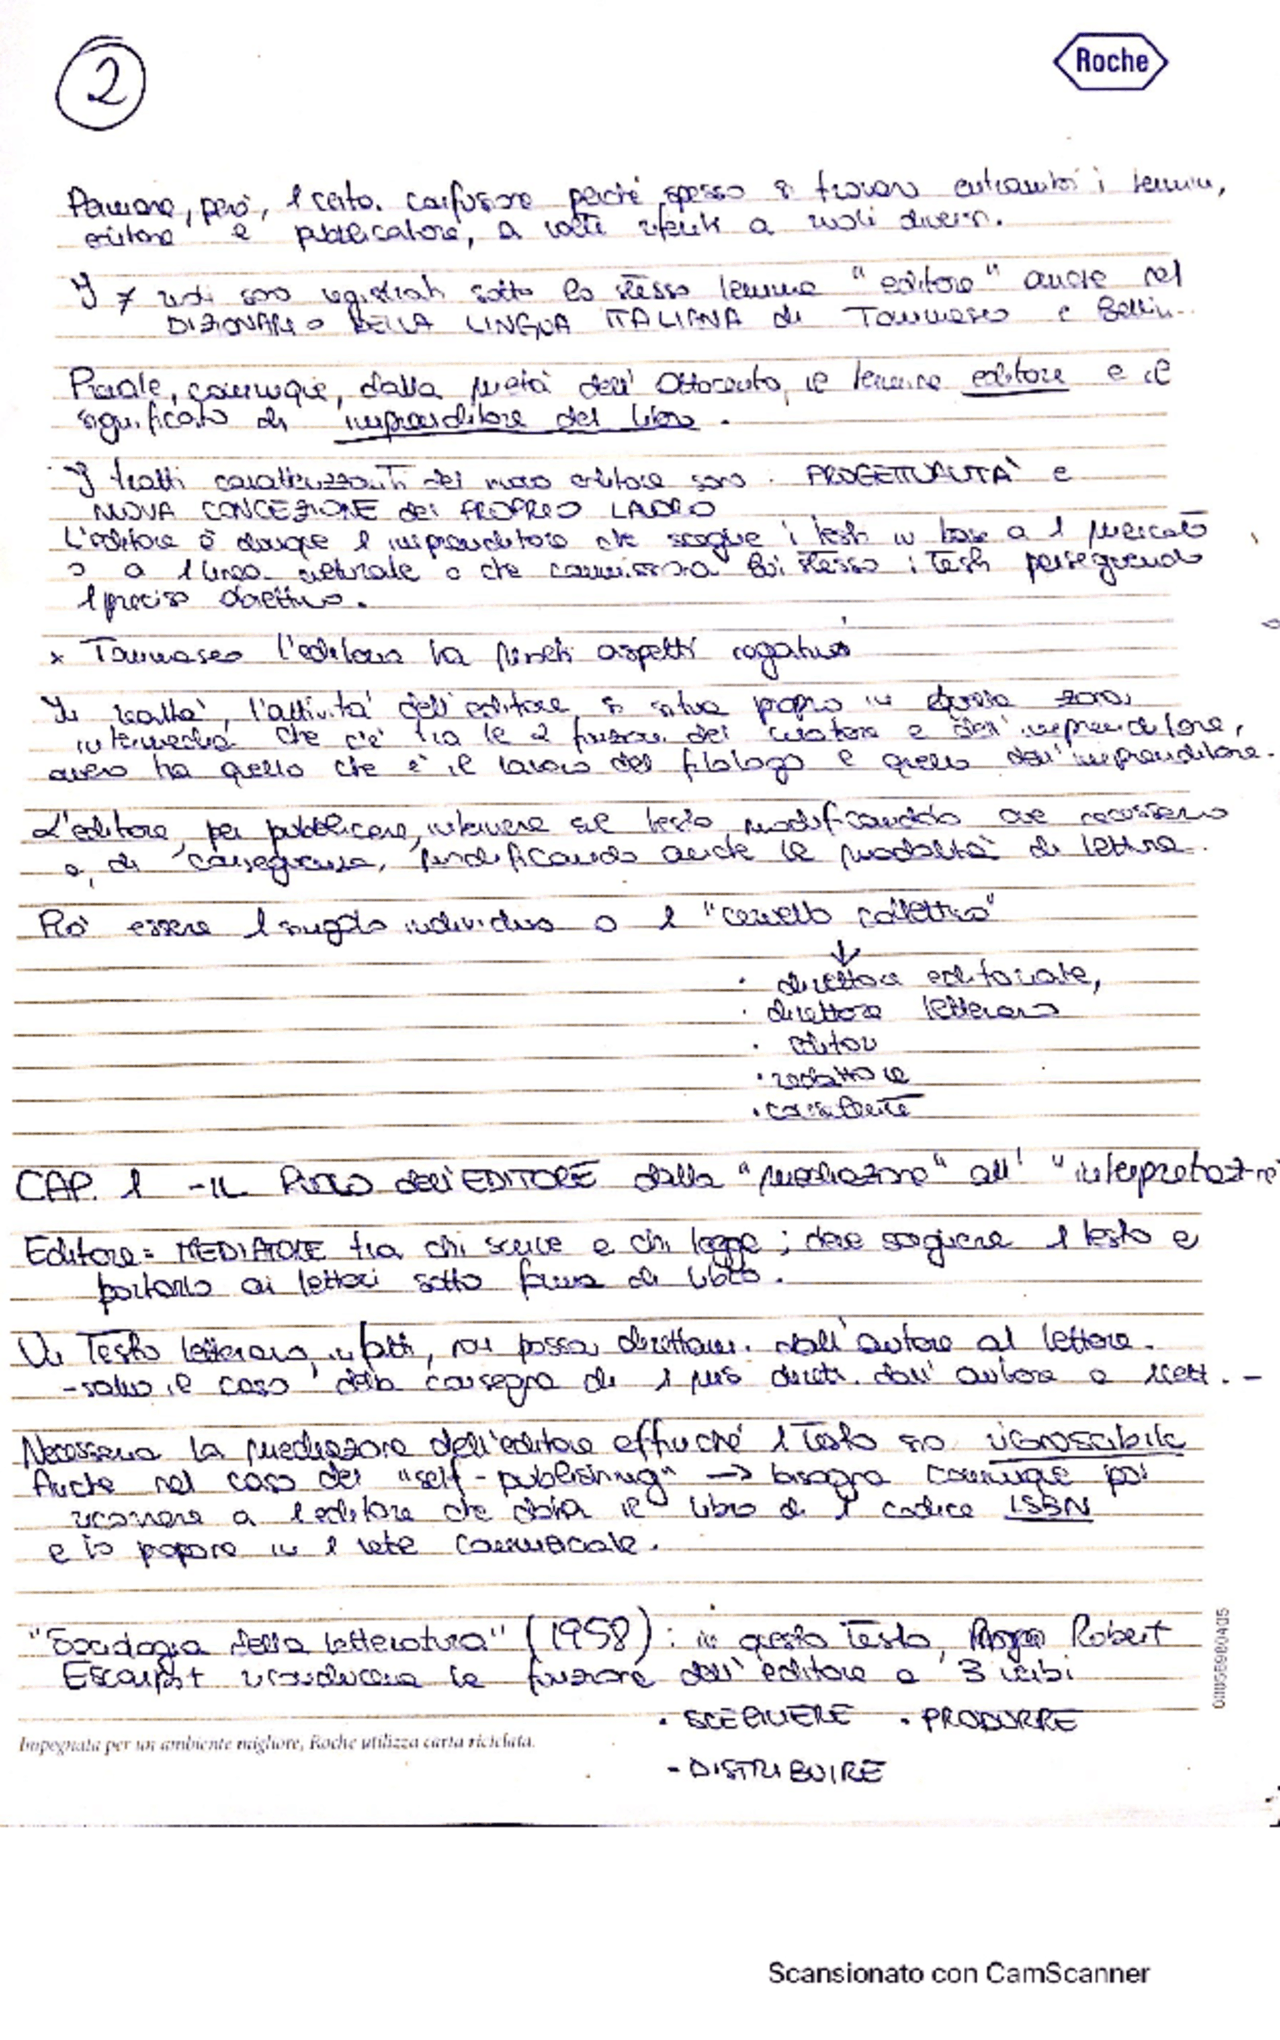 2
Roche
Permane, però, 1 certa confusione perché spesso si trovano entrambi i termini,
editore e pubblicatore, a volte riferiti a ruoli diversi.
I ≠ ruoli sono registrati sotto lo stesso lemma "editore" anche nel
DIZIONARIO DELLA LINGUA ITALIANA di Tommaseo e Bellini.
Prevale, comunque, dalla metà dell'Ottocento, il termine editore e il
significato di imprenditore del libro.
I tratti caratterizzanti del nuovo editore sono: PROGETTUALITÀ e
NUOVA CONCEZIONE del PROPRIO LAVORO
L'editore è dunque 1 imprenditore che sceglie i testi in base a 1 mercato
o a 1 linea culturale o che commissiona lui stesso i testi perseguendo
1 preciso obiettivo.
x Tommaseo l'editore ha parecchi aspetti negativi
In realtà, l'attività dell'editore si situa proprio in questa zona
intermedia che c'è tra le 2 funzioni del curatore e dell'imprenditore,
ovvero tra quello che è il lavoro del filologo e quello dell'imprenditore.
L'editore, per pubblicare, interviene sul testo, modificandolo ove necessario
e, di conseguenza, modificando anche le modalità di lettura.
Può essere 1 singolo individuo o 1 "cervello collettivo"
↓
· direttore editoriale,
· direttore letterario
· editor
· redattore
· consulente
CAP. 1 - IL RUOLO dell'EDITORE dalla "mediazione" all' "interpretaz.ne
Editore = MEDIATORE tra chi scrive e chi legge; deve scegliere 1 testo e
portarlo ai lettori sotto forma di libro.
Un Testo letterario, infatti, non passa direttam. dall'autore al lettore.
- salvo il caso della consegna di 1 ms dirett. dall'autore a 1 lett. -
Necessaria la mediazione dell'editore affinché 1 Testo sia riconoscibile
Anche nel caso del "self-publishing" -> bisogna comunque poi
ricorrere a 1 editore che doti il libro di 1 codice ISBN
e lo propone in 1 rete commerciale.
"Sociologia della letteratura" (1958): in questo Testo, Robert
Escarpit riconduceva la funzione dell'editore a 3 verbi
· SCEGLIERE · PRODURRE
- DISTRIBUIRE
Impegnata per un ambiente migliore, Roche utilizza carta riciclata.
Scansionato con CamScanner